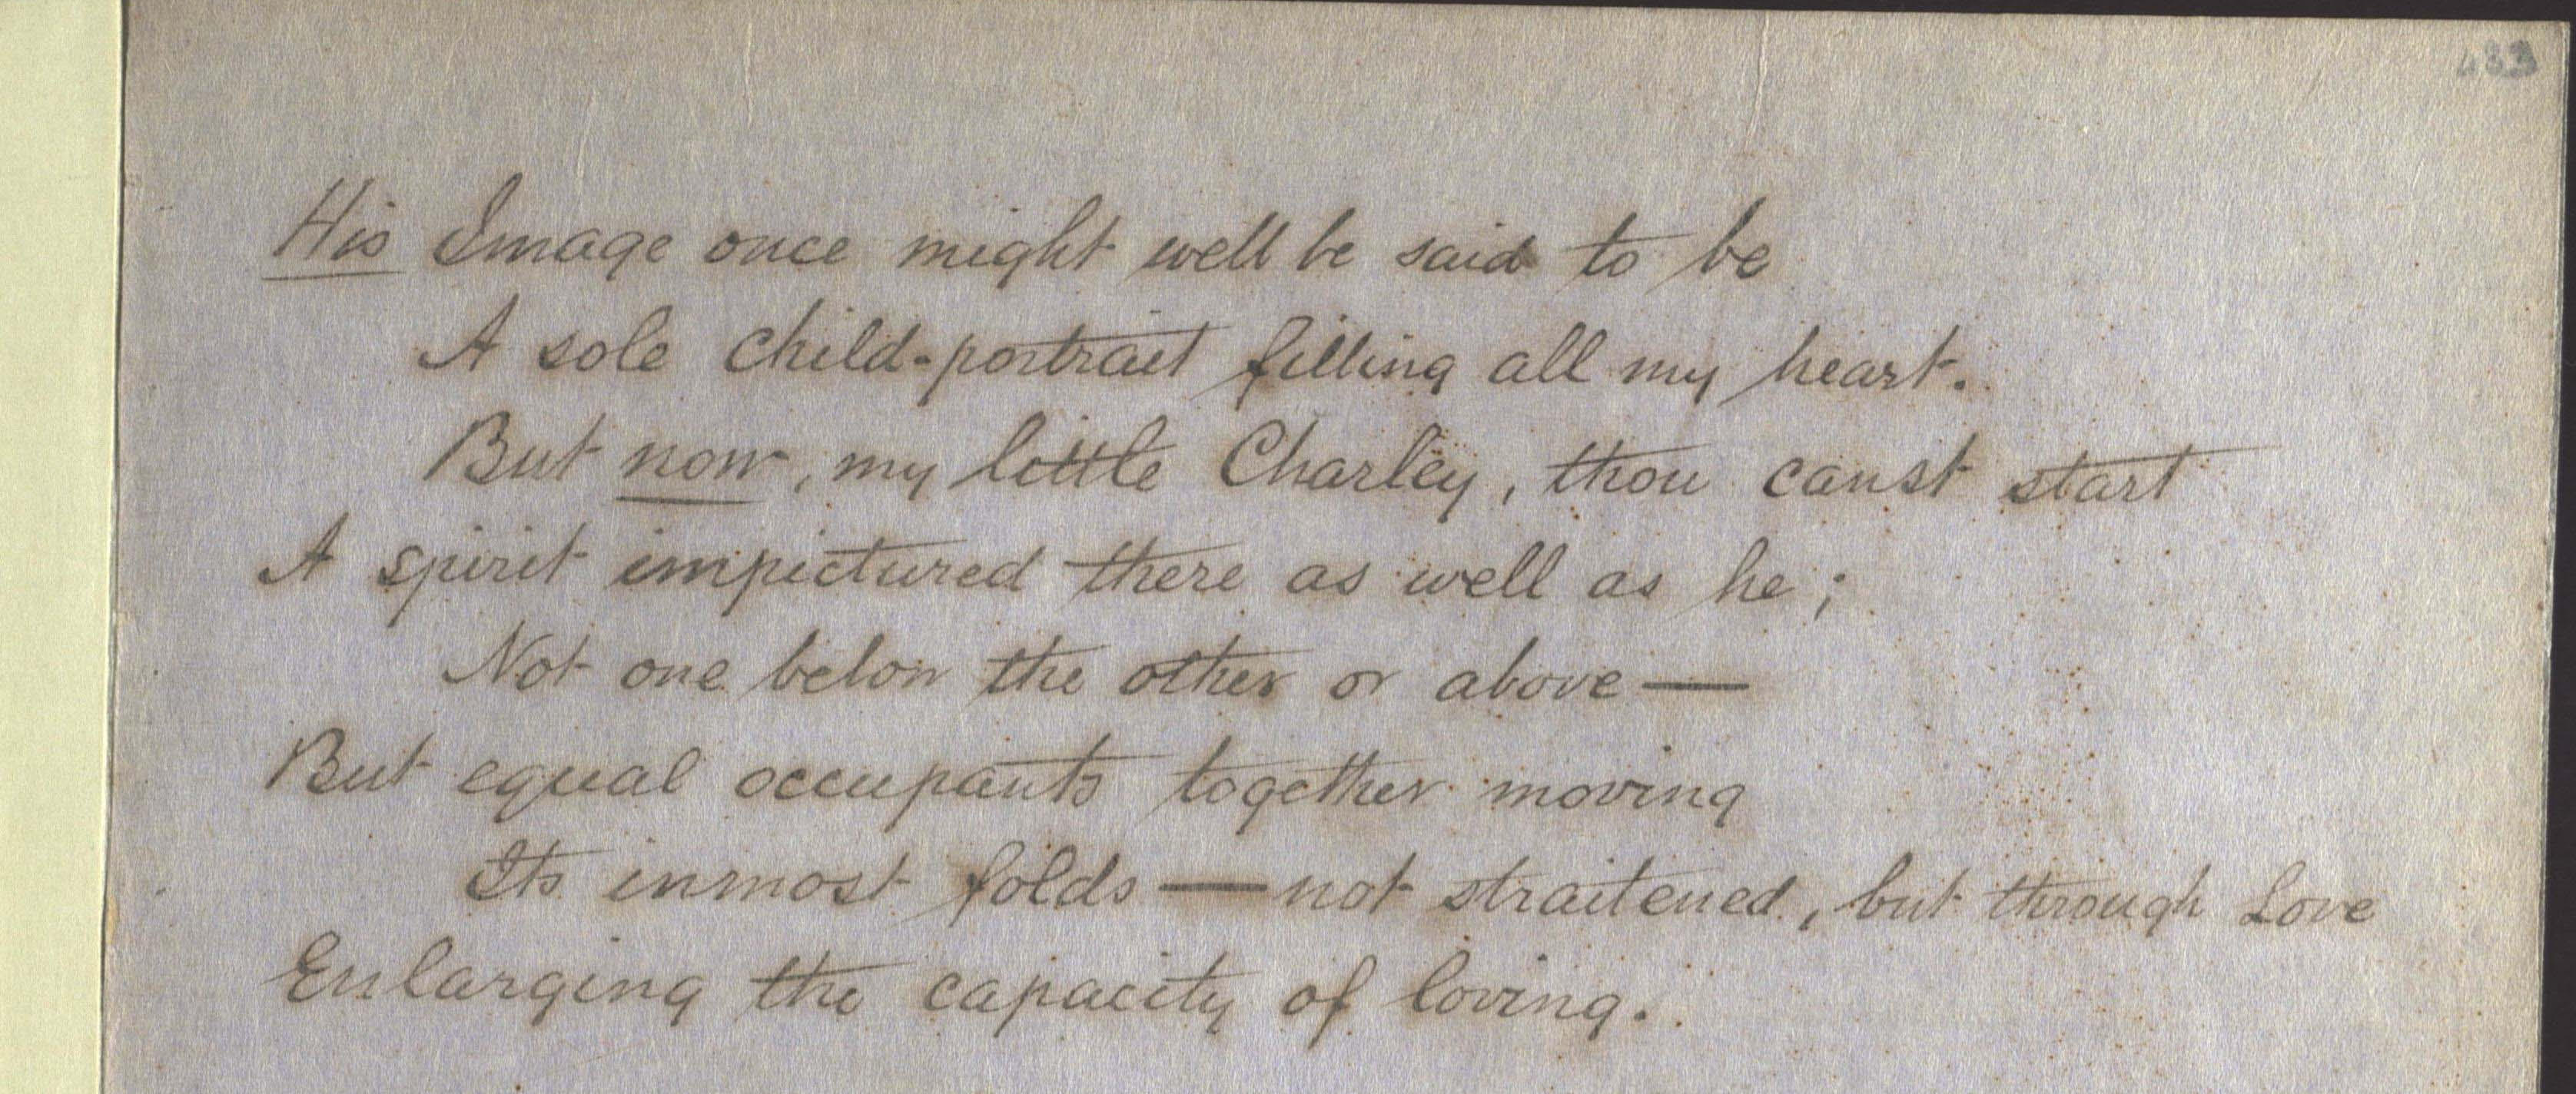 His Image once might well be said to be
A sole child-portrait filling all my heart.
But now, my little Charley, thou canst start
A spirit impictured there as well as he;
Not one below the other or above—
But equal occupants together moving
Its inmost folds—not straitened, but through Love
Enlarging the capacity of loving.